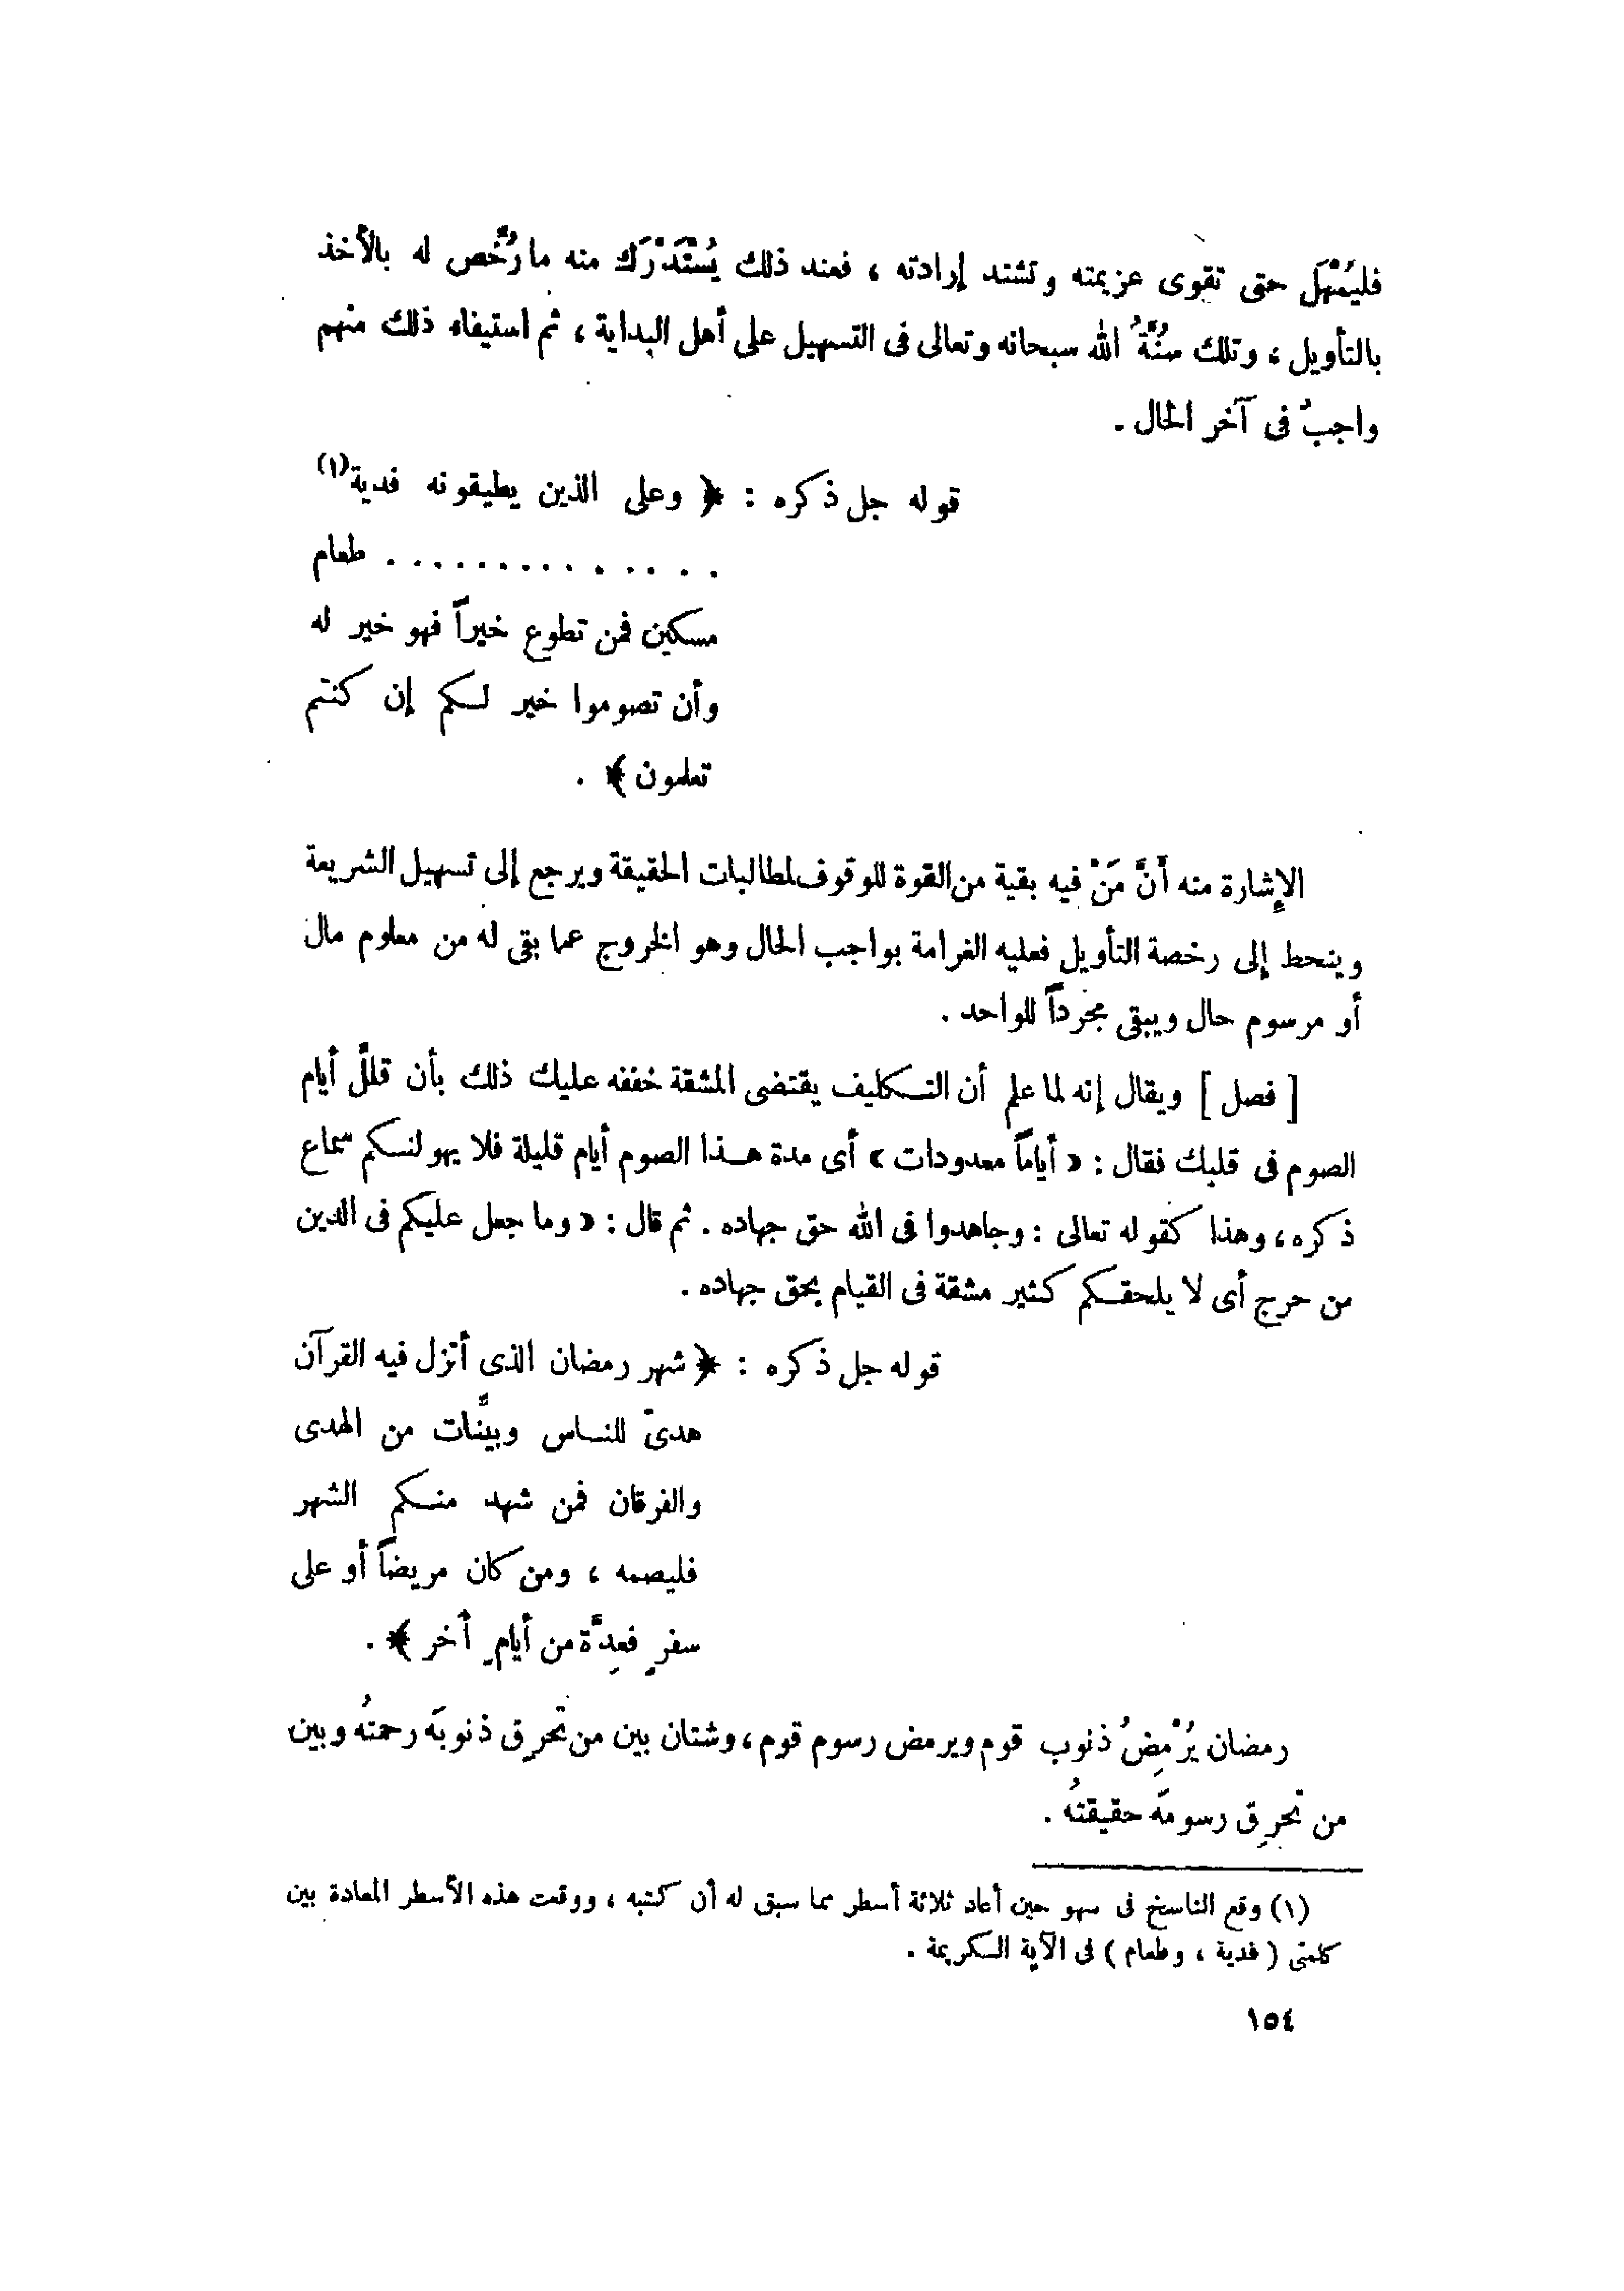 فليُمْهَل حتى تقوى عزيمته وتشتد إرادته ، فعند ذلك يُسْتَدْرَك منه ما رُخِّص له بالأخذ
بالتأويل ، وتلك سُنَّةُ الله سبحانه وتعالى فى التسهيل على أهل البداية ، ثم استيفاء ذلك منهم
واجبٌ فى آخر الحال .
قوله جل ذكره : ﴿ وعلى الذين يطيقونه فدية(١)
. . . . . . . . . . . . . . . طعام
مسكين فمن تطوع خيراً فهو خير له
وأن تصوموا خير لكم إن كنتم
تعلمون ﴾ .
الإشارة منه أنَّ مَنْ فيه بقية من القوة للوقوف لمطالبات الحقيقة ويرجع إلى تسهيل الشريعة
وينحط إلى رخصة التأويل فعليه الغرامة بواجب الحال وهو الخروج عما بقى له من معلوم مال
أو مرسوم حال ويبقى مجرداً للواحد .
[ فصل ] ويقال إنه لما علم أن التكليف يقتضى المشقة خففه عليك ذلك بأن قللَّ أيام
الصوم فى قلبك فقال : « أياماً معدودات » أى مدة هذا الصوم أيام قليلة فلا يهولنكم سماع
ذكره ، وهذا كقوله تعالى : وجاهدوا فى الله حق جهاده . ثم قال : « وما جعل عليكم فى الدين
من حرج أى لا يلحقكم كثير مشقة فى القيام بحق جهاده .
قوله جل ذكره : ﴿ شهر رمضان الذى أنزل فيه القرآن
هدىً للناس وبينَّات من الهدى
والفرقان فمن شهد منكم الشهر
فليصمه ، ومن كان مريضاً أو على
سفرٍ فعِدَّة من أيامٍ أخر ﴾ .
رمضان يُرْمِضُ ذنوب قوم ويرمض رسوم قوم ، وشتان بين من تحرِق ذنوبَه رحمتُه وبين
من تحرِق رسومَه حقيقتُه .
(١) وقع الناسخ فى سهو حين أعاد ثلاثة أسطر مما سبق له أن كتبه ، ووقعت هذه الأسطر المعادة بين
كلمتى ( فدية ، وطعام ) فى الآية الكريمة .
١٥٤